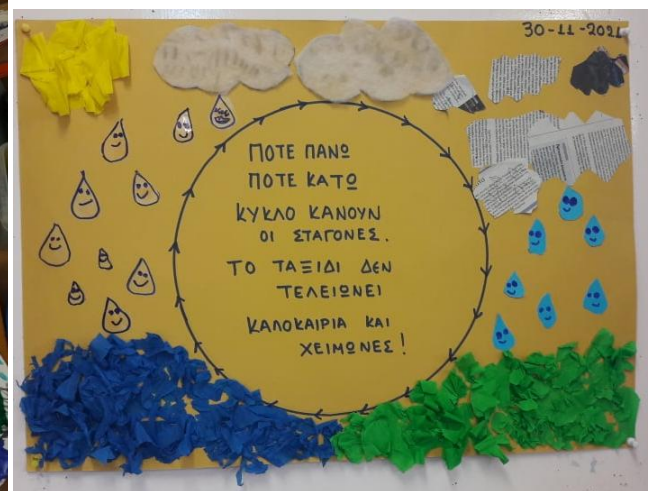 30-11-2021
ΠΟΤΕ ΠΑΝΩ
ΠΟΤΕ ΚΑΤΩ
ΚΥΚΛΟ ΚΑΝΟΥΝ
ΟΙ ΣΤΑΓΟΝΕΣ.
ΤΟ ΤΑΞΙΔΙ ΔΕΝ
ΤΕΛΕΙΩΝΕΙ
ΚΑΛΟΚΑΙΡΙΑ ΚΑΙ
ΧΕΙΜΩΝΕΣ!